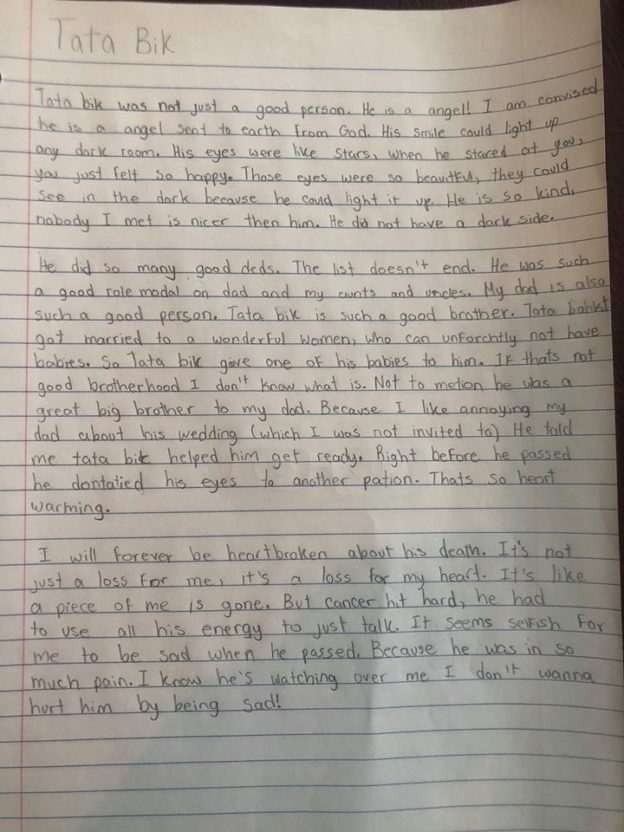 Tata Bik
Tata bik was not just a good person. He is a angel! I am convised
he is a angel sent to earth from God. His smile could light up
any dark room. His eyes were like stars, when he stared at you,
you just felt so happy. Those eyes were so beauitful, they could
see in the dark because he could light it up. He is so kind,
nobody I met is nicer then him. He did not have a dark side.
He did so many good deds. The list doesn't end. He was such
a good role modal on dad and my aunts and uncles. My dad is also
such a good person. Tata bik is such a good brother. Tata
got married to a wonderful women, who can unforchtly not have
babies. So Tata bik gave one of his babies to him. If thats not
good brotherhood I don't know what is. Not to metion he was a
great big brother to my dad. Because I like annoying my
dad about his wedding (which I was not invited to) He told
me tata bik helped him get ready. Right before he passed
he dontatied his eyes to another pation. Thats so heart
warming.
I will forever be heartbroken about his death. It's not
just a loss for me, it's a loss for my heart. It's like
a piece of me is gone. But cancer hit hard, he had
to use all his energy to just talk. It seems selfish for
me to be sad when he passed. Because he was in so
much pain. I know he's watching over me I don't wanna
hurt him by being sad!